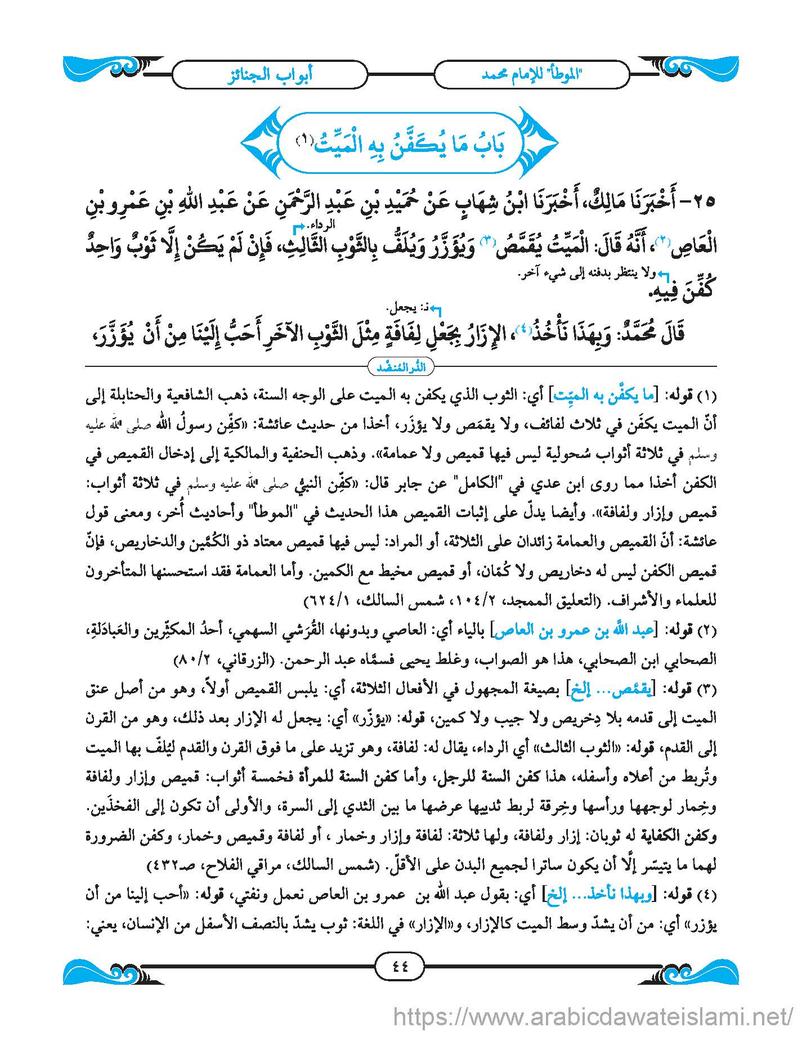 "الموطأ" للإمام محمد
أبواب الجنائز
بَابُ مَا يُكَفَّنُ بِهِ الْمَيِّتُ(١)
٢٥- أَخْبَرَنَا مَالِكٌ، أَخْبَرَنَا ابْنُ شِهَابٍ عَنْ حُمَيْدِ بْنِ عَبْدِ الرَّحْمَنِ عَنْ عَبْدِ اللهِ بْنِ عَمْرِو بْنِ
الرداء.
الْعَاصِ(٢)، أَنَّهُ قَالَ: الْمَيِّتُ يُقَمَّصُ(٣) وَيُؤَزَّرُ وَيُلَفُّ بِالثَّوْبِ الثَّالِثِ، فَإِنْ لَمْ يَكُنْ إِلَّا ثَوْبٌ وَاحِدٌ
ولا ينتظر بدفنه إلى شيء آخر.
كُفِّنَ فِيهِ.
نـ: يجعل.
قَالَ مُحَمَّدٌ: وَبِهَذَا نَأْخُذُ(٤)، الإِزَارُ بِجَعْلِ لِفَافَةٍ مِثْلَ الثَّوْبِ الآخَرِ أَحَبُّ إِلَيْنَا مِنْ أَنْ يُؤَزَّرَ،
الدُّر المُنضَّد
(١) قوله: [ما يكفَّن به الميِّت] أي: الثوب الذي يكفن به الميت على الوجه السنة، ذهب الشافعية والحنابلة إلى
أنّ الميت يكفَن في ثلاث لفائف، ولا يقمَص ولا يؤزَر، أخذا من حديث عائشة: «كفِّن رسولُ الله صلى الله عليه
وسلم في ثلاثة أثواب سُحولية ليس فيها قميص ولا عمامة». وذهب الحنفية والمالكية إلى إدخال القميص في
الكفن أخذا مما روى ابن عدي في "الكامل" عن جابر قال: «كفِّن النبيُّ صلى الله عليه وسلم في ثلاثة أثواب:
قميص وإزار ولفافة». وأيضا يدلّ على إثبات القميص هذا الحديث في "الموطأ" وأحاديث أُخر، ومعنى قول
عائشة: أنّ القميص والعمامة زائدان على الثلاثة، أو المراد: ليس فيها قميص معتاد ذو الكُمَّين والدخاريص، فإنّ
قميص الكفن ليس له دخاريص ولا كُمَّان، أو قميص مخيط مع الكمين. وأما العمامة فقد استحسنها المتأخرون
للعلماء والأشراف. (التعليق الممجد، ١٠٤/٢، شمس السالك، ٦٢٤/١)
(٢) قوله: [عبد اللَّه بن عمرو بن العاص] بالياء أي: العاصي وبدونها، القُرَشي السهمي، أحدُ المكثِّرين والعَبادَلَةِ،
الصحابي ابن الصحابي، هذا هو الصواب، وغلط يحيى فسمَّاه عبد الرحمن. (الزرقاني، ٨٠/٢)
(٣) قوله: [يقمَّص... إلخ] بصيغة المجهول في الأفعال الثلاثة، أي: يلبس القميص أولاً، وهو من أصل عنق
الميت إلى قدمه بلا دِخريص ولا جيب ولا كمين، قوله: «يؤزّر» أي: يجعل له الإزار بعد ذلك، وهو من القرن
إلى القدم، قوله: «الثوب الثالث» أي الرداء، يقال له: لفافة، وهو تزيد على ما فوق القرن والقدم ليُلفّ بها الميت
وتُربط من أعلاه وأسفله، هذا كفن السنة للرجل، وأما كفن السنة للمرأة فخمسة أثواب: قميص وإزار ولفافة
وخِمار لوجهها ورأسها وخِرقة لربط ثدييها عرضها ما بين الثدي إلى السرة، والأولى أن تكون إلى الفخذَين.
وكفن الكفاية له ثوبان: إزار ولفافة، ولها ثلاثة: لفافة وإزار وخمار ، أو لفافة وقميص وخمار، وكفن الضرورة
لهما ما يتيسّر إلَّا أن يكون ساترا لجميع البدن على الأقلّ. (شمس السالك، مراقي الفلاح، صـ٤٣٢)
(٤) قوله: [وبهذا نأخذ... إلخ] أي: بقول عبد الله بن عمرو بن العاص نعمل ونفتي، قوله: «أحب إلينا من أن
يؤزر» أي: من أن يشدّ وسط الميت كالإزار، و«الإزار» في اللغة: ثوب يشدّ بالنصف الأسفل من الإنسان، يعني:
٤٤
https://www.arabicdawateislami.net/